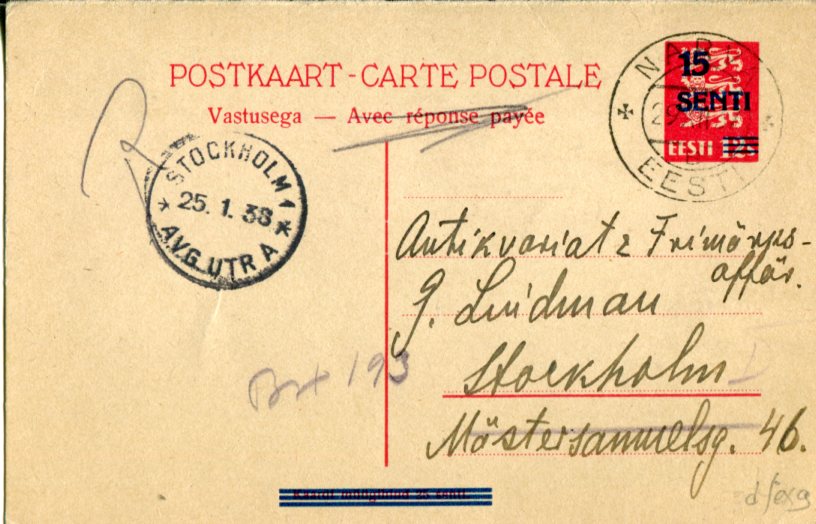 POSTKAART - CARTE POSTALE
Vastusega — Avec réponse payée
15
SENTI
EESTI
EESTI
STOCKHOLM 1
25. 1. 38
AVG. UTR A
Antikvariat & Frimärks-
affär.
G. Lindman
Stockholm
Mästersamuelsg. 46.
193